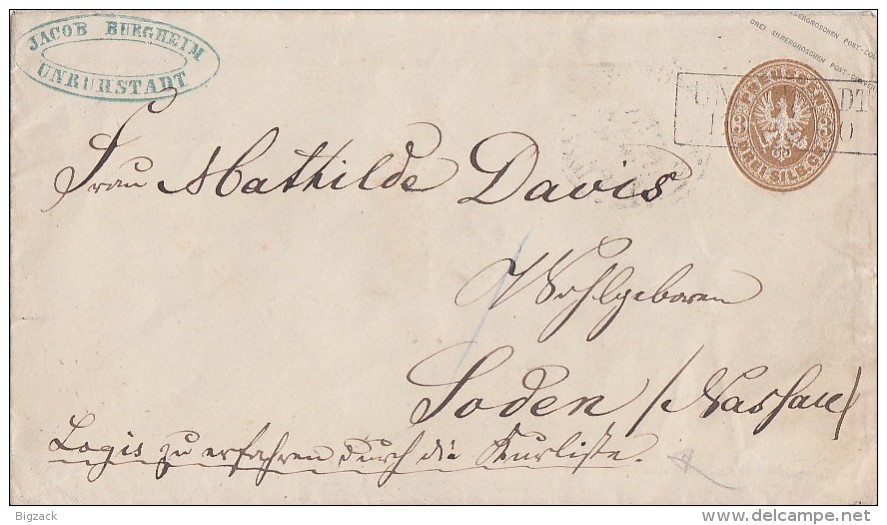 JACOB BURGHEIM
UNRUHSTADT
SILBERGROSCHEN POST-COU
DREI SILBERGROSCHEN POST-COUVERT
PREUSSEN
3 3
DREI SILB. GR.
Frau Mathilde Davis
Wohlgeboren
Soden /Nassau/
Logis zu erfahren durch die Kurliste.
Bigzack
www.delcampe.net